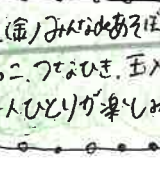 (金)みんなであそぼ
こ、つなひき、玉入
人ひとりが楽しみ